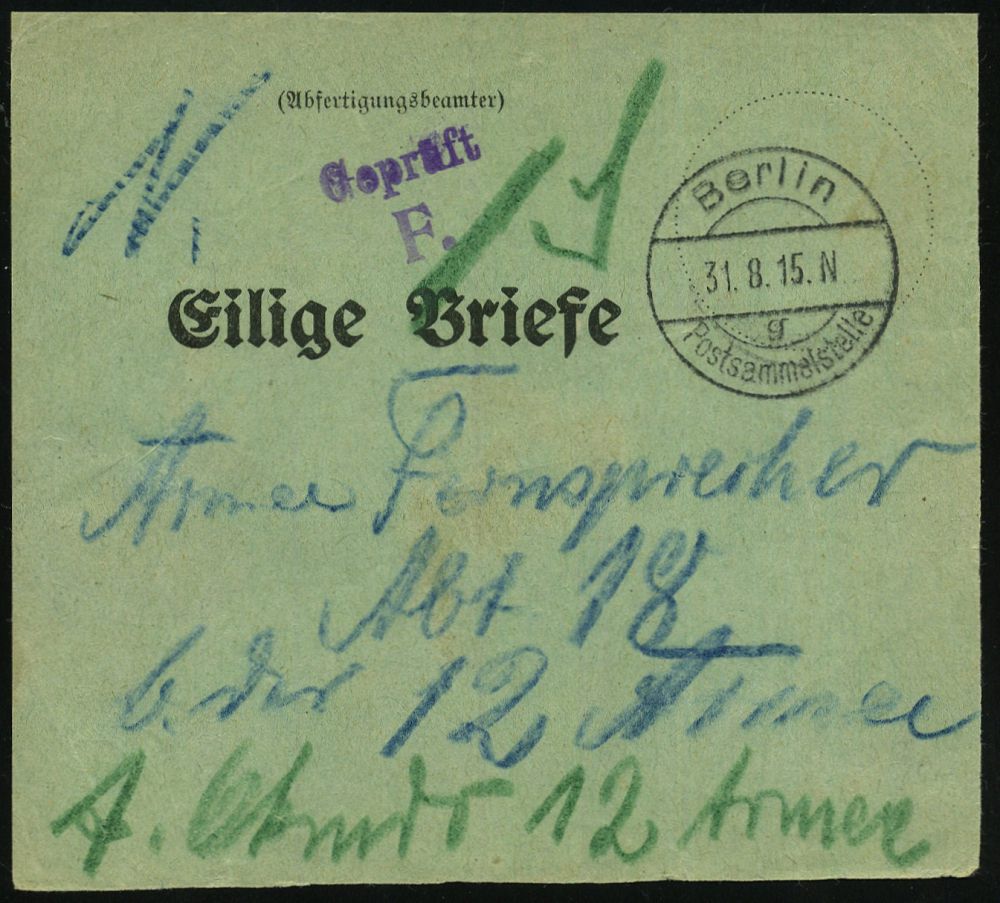 (Abfertigungsbeamter)
Geprüft
F.
Eilige Briefe
Berlin
31. 8. 15. N
g
Postsammelstelle
Armee Fernsprecher
Abt 18
b. der 12 Armee
12 Armee